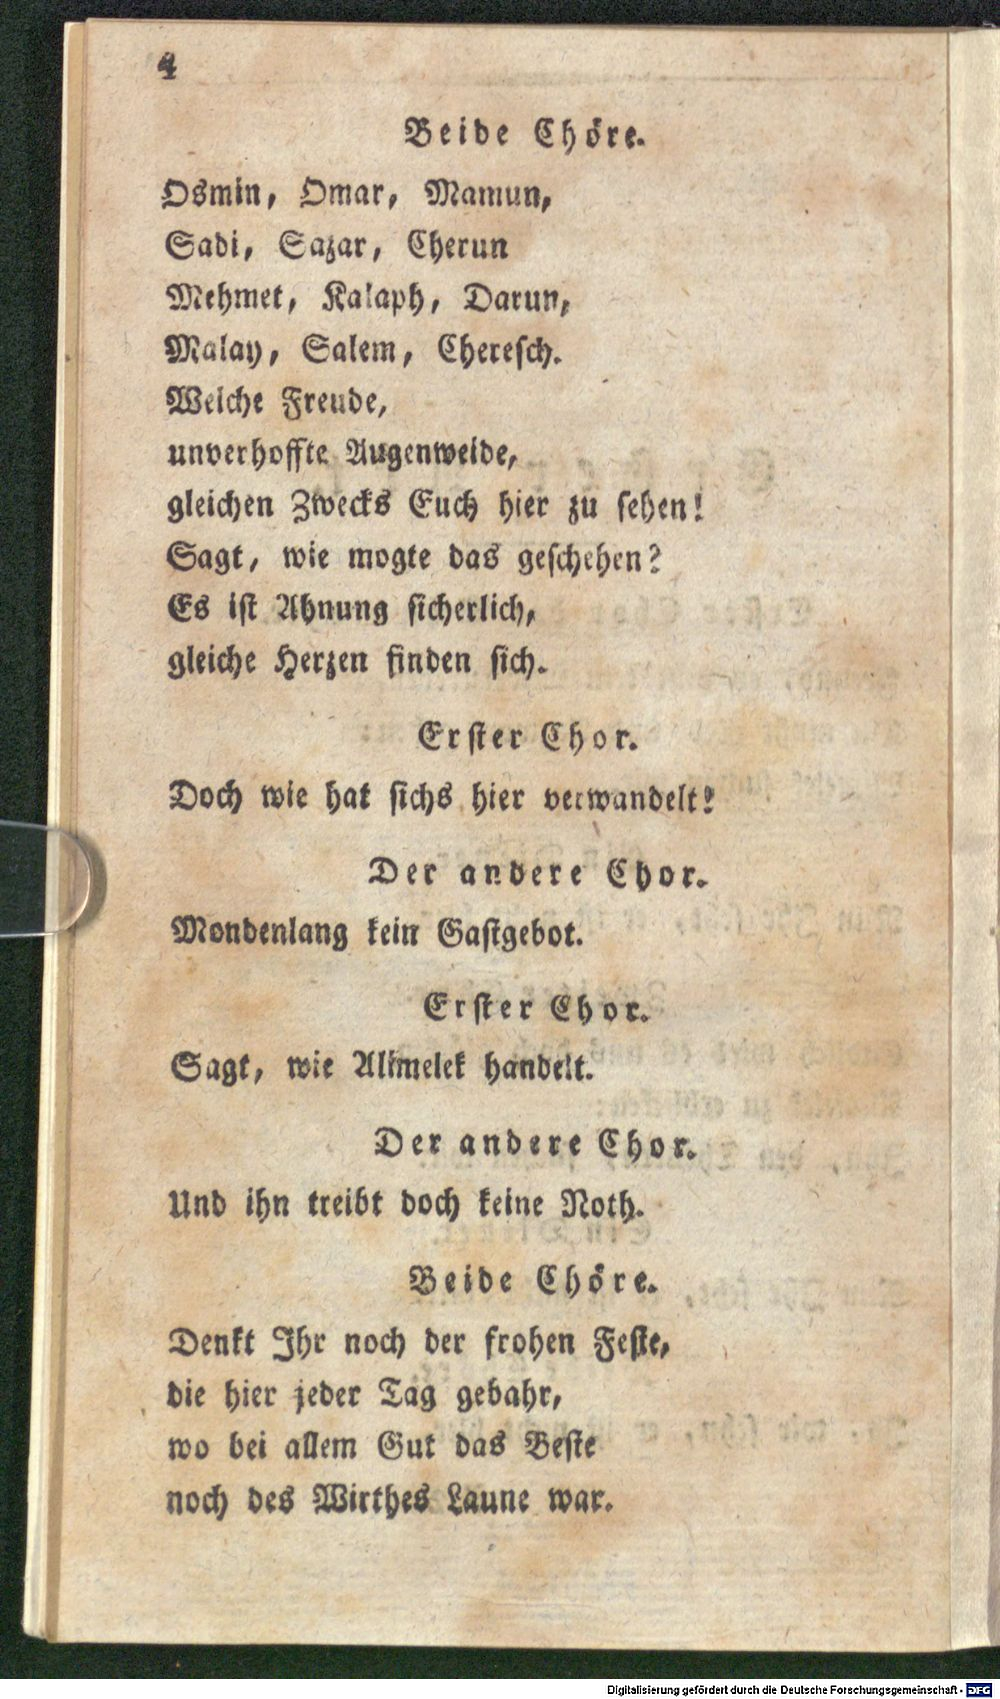 4
Beide Chöre.
Osmin, Omar, Mamun,
Sadi, Sazar, Cherun
Mehmet, Kalaph, Darun,
Malay, Salem, Cheresch.
Welche Freude,
unverhoffte Augenweide,
gleichen Zwecks Euch hier zu sehen!
Sagt, wie mogte das geschehen?
Es ist Ahnung sicherlich,
gleiche Herzen finden sich.
Erster Chor.
Doch wie hat sichs hier verwandelt!
Der andere Chor.
Mondenlang kein Gastgebot.
Erster Chor.
Sagt, wie Alimelek handelt.
Der andere Chor.
Und ihn treibt doch keine Noth.
Beide Chöre.
Denkt Ihr noch der frohen Feste,
die hier jeder Tag gebahr,
wo bei allem Gut das Beste
noch des Wirthes Laune war.
Digitalisierung gefördert durch die Deutsche Forschungsgemeinschaft - DFG